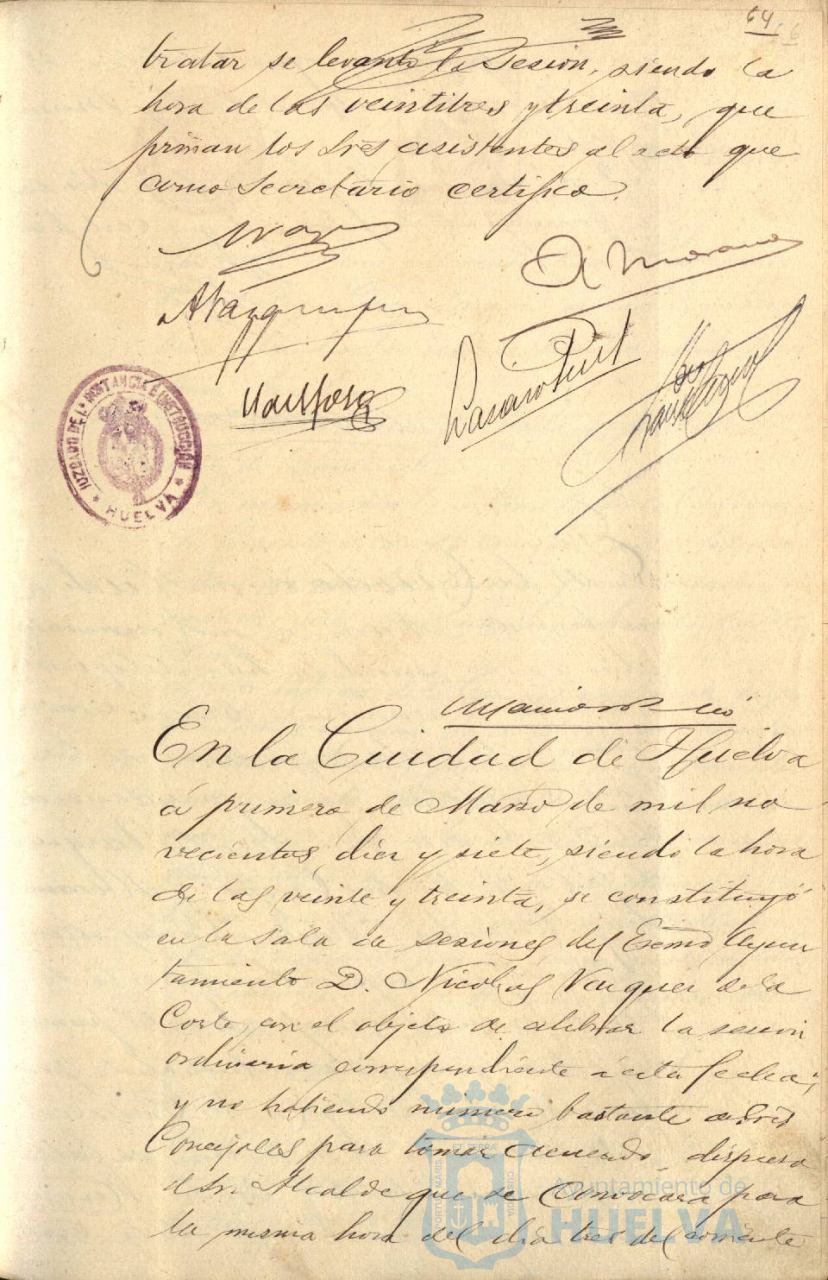 64
tratar se levantó la Sesión, siendo la
hora de las veintitres y treinta, que
firman los Sres asistentes al acto que
como Secretario certifico.
A. Morano
JUZGADO DE 1ª INSTANCIA E INSTRUCCIÓN
* HUELVA *
En la Cuidad de Huelva
á primero de Marzo de mil no
vecientos diez y siete, siendo la hora
de las veinte y treinta, se constituyó
en la Sala de sesiones del Excmo Ayun
tamiento D. Nicolas Vazquez de la
Corte, con el objeto de celebrar la sesion
ordinaria correspondiente á esta fecha;
y no habiendo número bastante de Sres
Concejales para tomar acuerdo dispuso
el Sr. Alcalde que se convocara para
la misma hora del día tres del corriente
Ayuntamiento de
HUELVA